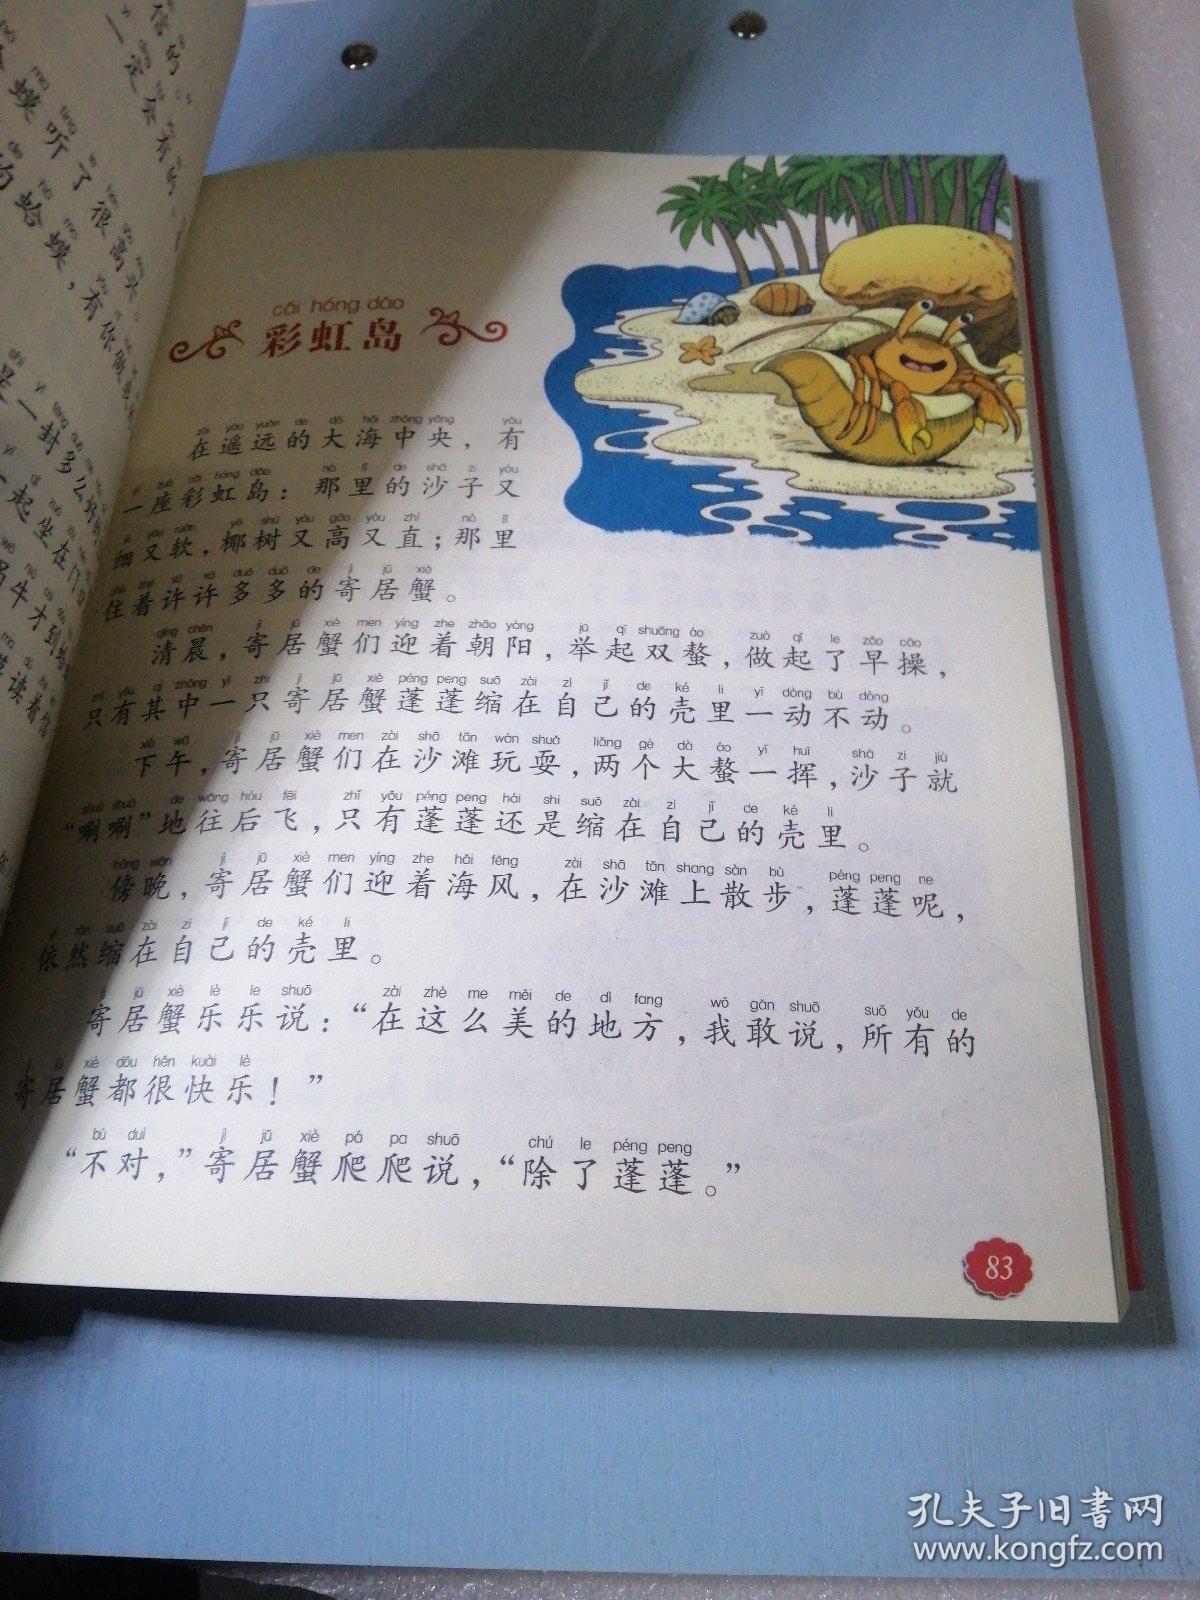 cǎi hóng dǎo
彩虹岛
zài yáo yuǎn de dà hǎi zhōng yāng yǒu
在遥远的大海中央，有
yí zuò cǎi hóng dǎo nà lǐ de shā zi yòu
一座彩虹岛：那里的沙子又
xì yòu ruǎn yē shù yòu gāo yòu zhí nà lǐ
细又软，椰树又高又直；那里
zhù zhe xǔ xǔ duō duō de jì jū xiè
住着许许多多的寄居蟹。
qīng chén jì jū xiè men yíng zhe zhāo yáng jǔ qǐ shuāng áo zuò qǐ le zǎo cāo
清晨，寄居蟹们迎着朝阳，举起双螯，做起了早操，
zhǐ yǒu qí zhōng yì zhī jì jū xiè péng peng suō zài zì jǐ de ké li yī dòng bù dòng
只有其中一只寄居蟹蓬蓬缩在自己的壳里一动不动。
xià wǔ jì jū xiè men zài shā tān wán shuǎ liǎng gè dà áo yī huī shā zi jiù
下午，寄居蟹们在沙滩玩耍，两个大螯一挥，沙子就
shuā shuā de wǎng hòu fēi zhǐ yǒu péng peng hái shi suō zài zì jǐ de ké li
“唰唰”地往后飞，只有蓬蓬还是缩在自己的壳里。
bàng wǎn jì jū xiè men yíng zhe hǎi fēng zài shā tān shang sàn bù péng peng ne
傍晚，寄居蟹们迎着海风，在沙滩上散步，蓬蓬呢，
yī rán suō zài zì jǐ de ké li
依然缩在自己的壳里。
jì jū xiè lè le shuō zài zhè me měi de dì fang wǒ gǎn shuō suǒ yǒu de
寄居蟹乐乐说：“在这么美的地方，我敢说，所有的
jì jū xiè dōu hěn kuài lè
寄居蟹都很快乐！”
bù duì jì jū xiè pá pa shuō chú le péng peng
“不对，”寄居蟹爬爬说，“除了蓬蓬。”
83
孔夫子旧书网
www.kongfz.com